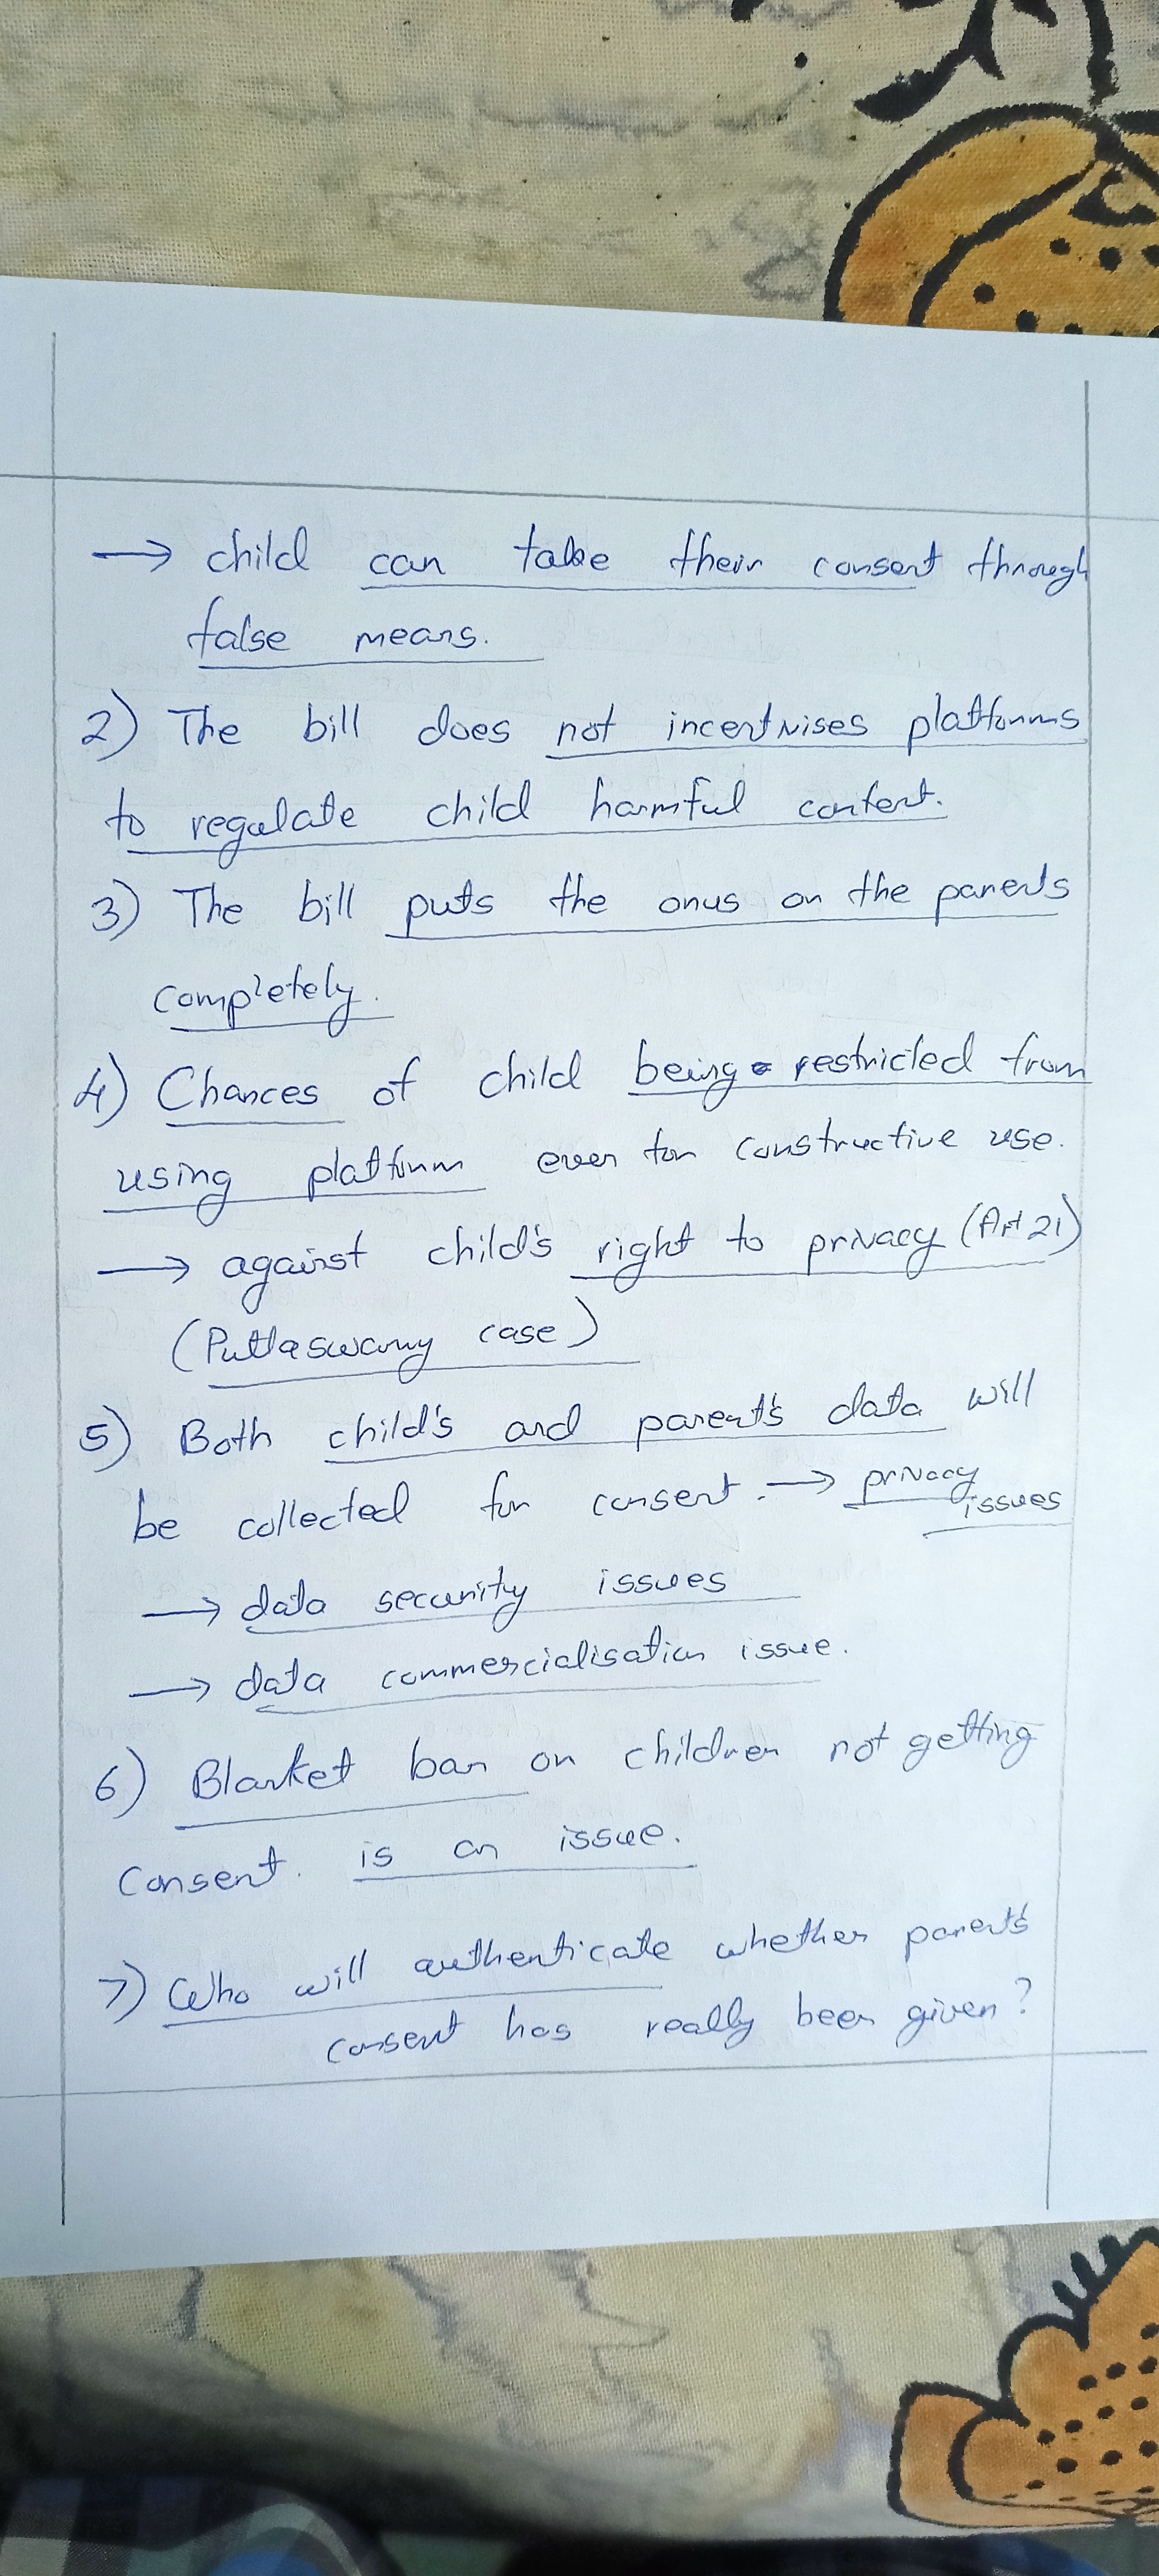 → child can take their consent through
false means.
2) The bill does not incentivises platforms
to regulate child harmful content.
3) The bill puts the onus on the parents
completely.
4) Chances of child being restricted from
using platform even for constructive use.
→ against child's right to privacy (Art 21)
(Puttaswamy case)
5) Both child's and parent's data will
be collected for consent. → privacy
issues
→ data security issues
→ data commercialisation issue.
6) Blanket ban on children not getting
consent. is an issue.
7) Who will authenticate whether parent's
consent has really been given?